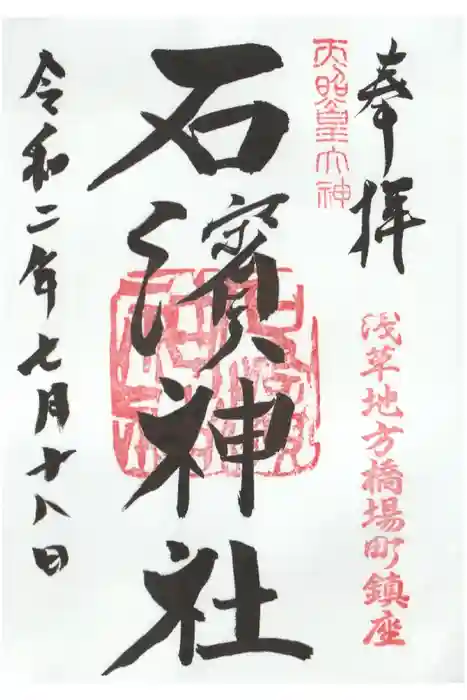 奉拝
浅草地方橋場町鎮座
天照皇大神
石濱神社
令和二年七月十八日